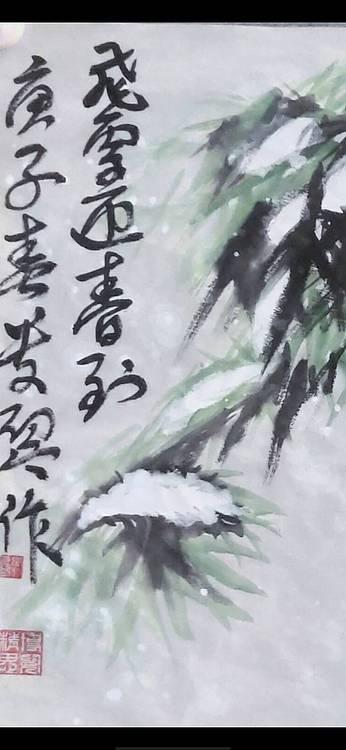 飛雪迎春到
庚子春作